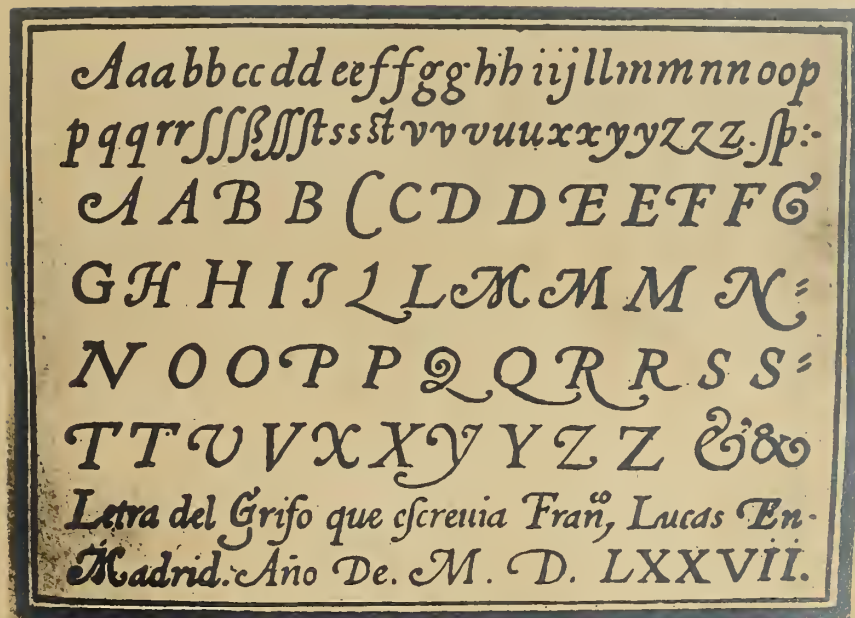 Aaabbccddeeffgghhiijllmmnnoop
pqqrrſſſßſſſtssstvvvuuxxyyzzz.ſp:-
A A B B C C D D E E F F G
G H H I J L L M M M N=
N O O P P Q Q R R S S=
T T V V X X Y Y Z Z & &
Letra del Grifo que eſcreuia Franᷠ, Lucas En-
Madrid. Año De. M. D. LXXVII.